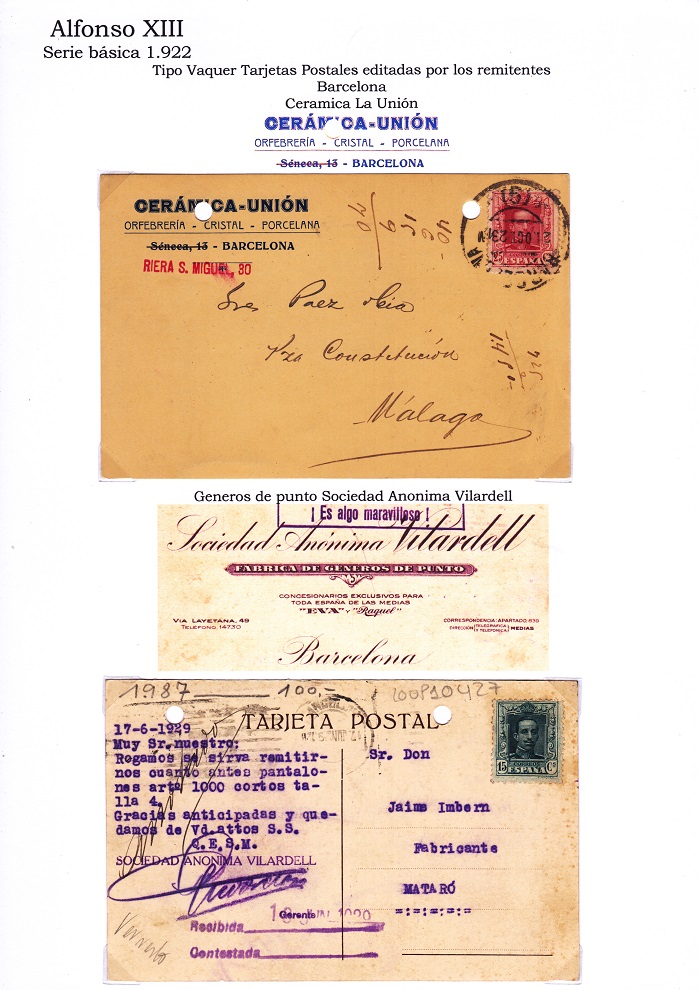 Alfonso XIII
Serie básica 1.922
Tipo Vaquer Tarjetas Postales editadas por los remitentes
Barcelona
Ceramica La Unión
CERÁMICA-UNIÓN
ORFEBRERÍA - CRISTAL - PORCELANA
Séneca, 13 - BARCELONA
CERÁMICA-UNIÓN
ORFEBRERÍA - CRISTAL - PORCELANA
Séneca, 13 - BARCELONA
RIERA S. MIGUEL, 30
ESPAÑA
Sres Paez
Pza Constitución
Málaga
Generos de punto Sociedad Anonima Vilardell
¡ Es algo maravilloso !
Sociedad Anónima Vilardell
FABRICA DE GENEROS DE PUNTO
CONCESIONARIOS EXCLUSIVOS PARA
TODA ESPAÑA DE LAS MEDIAS
"EVA" Y "Raquel"
VIA LAYETANA, 49
TELÉFONO 14730
CORRESPONDENCIA: APARTADO 639
DIRECCIÓN TELEGRÁFICA Y TELEFÓNICA MEDIAS
Barcelona
1987 100,-
200P10427
TARJETA POSTAL
15 Cs
ESPAÑA
17-6-1929
Muy Sr.nuestro:
Rogamos se sirva remitir-
nos cuanto antes pantalo-
nes arte 1000 cortos ta-
lla 4.
Gracias anticipadas y que-
damos de Vd.attos S.S.
Q.E.S.M.
SOCIEDAD ANONIMA VILARDELL
Gerente
Sr. Don
Jaime Imbern
Fabricante
MATARÓ
-:-:-:-:-
Recibida
Contestada